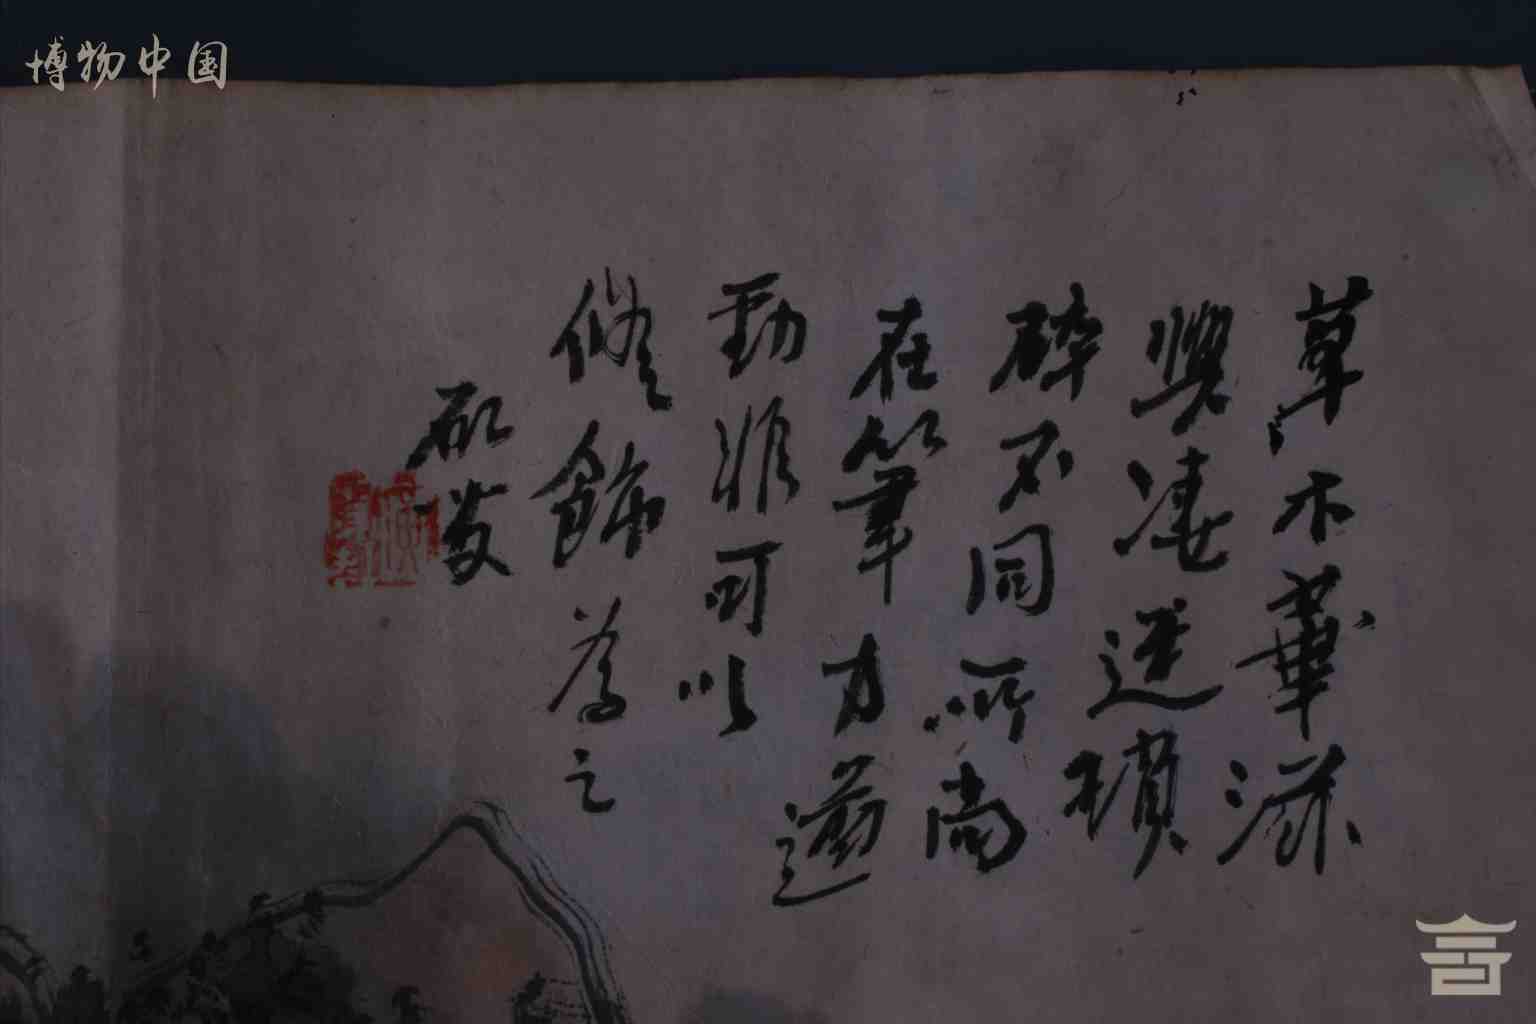 博物中国
草木華滋
與凄迷積
碎不同所尚
在筆力遒
勁非可以
修飾為之